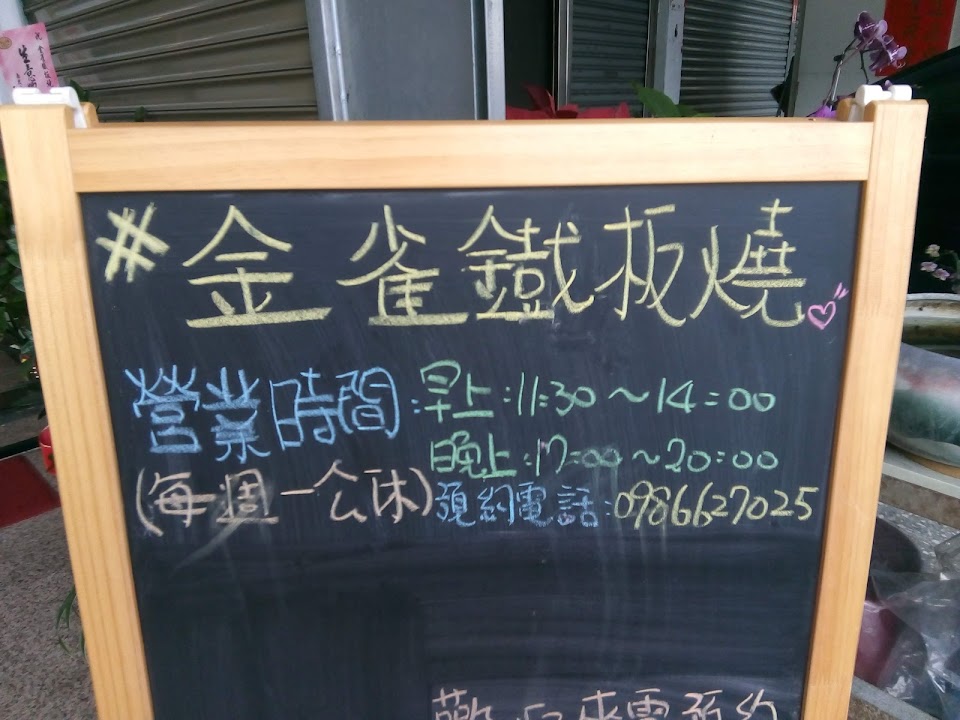 #金雀鐵板燒
營業時間:早上:11:30~14:00
晚上:17:00~20:00
(每週一公休)預約電話:0986627025
來電預約
生意